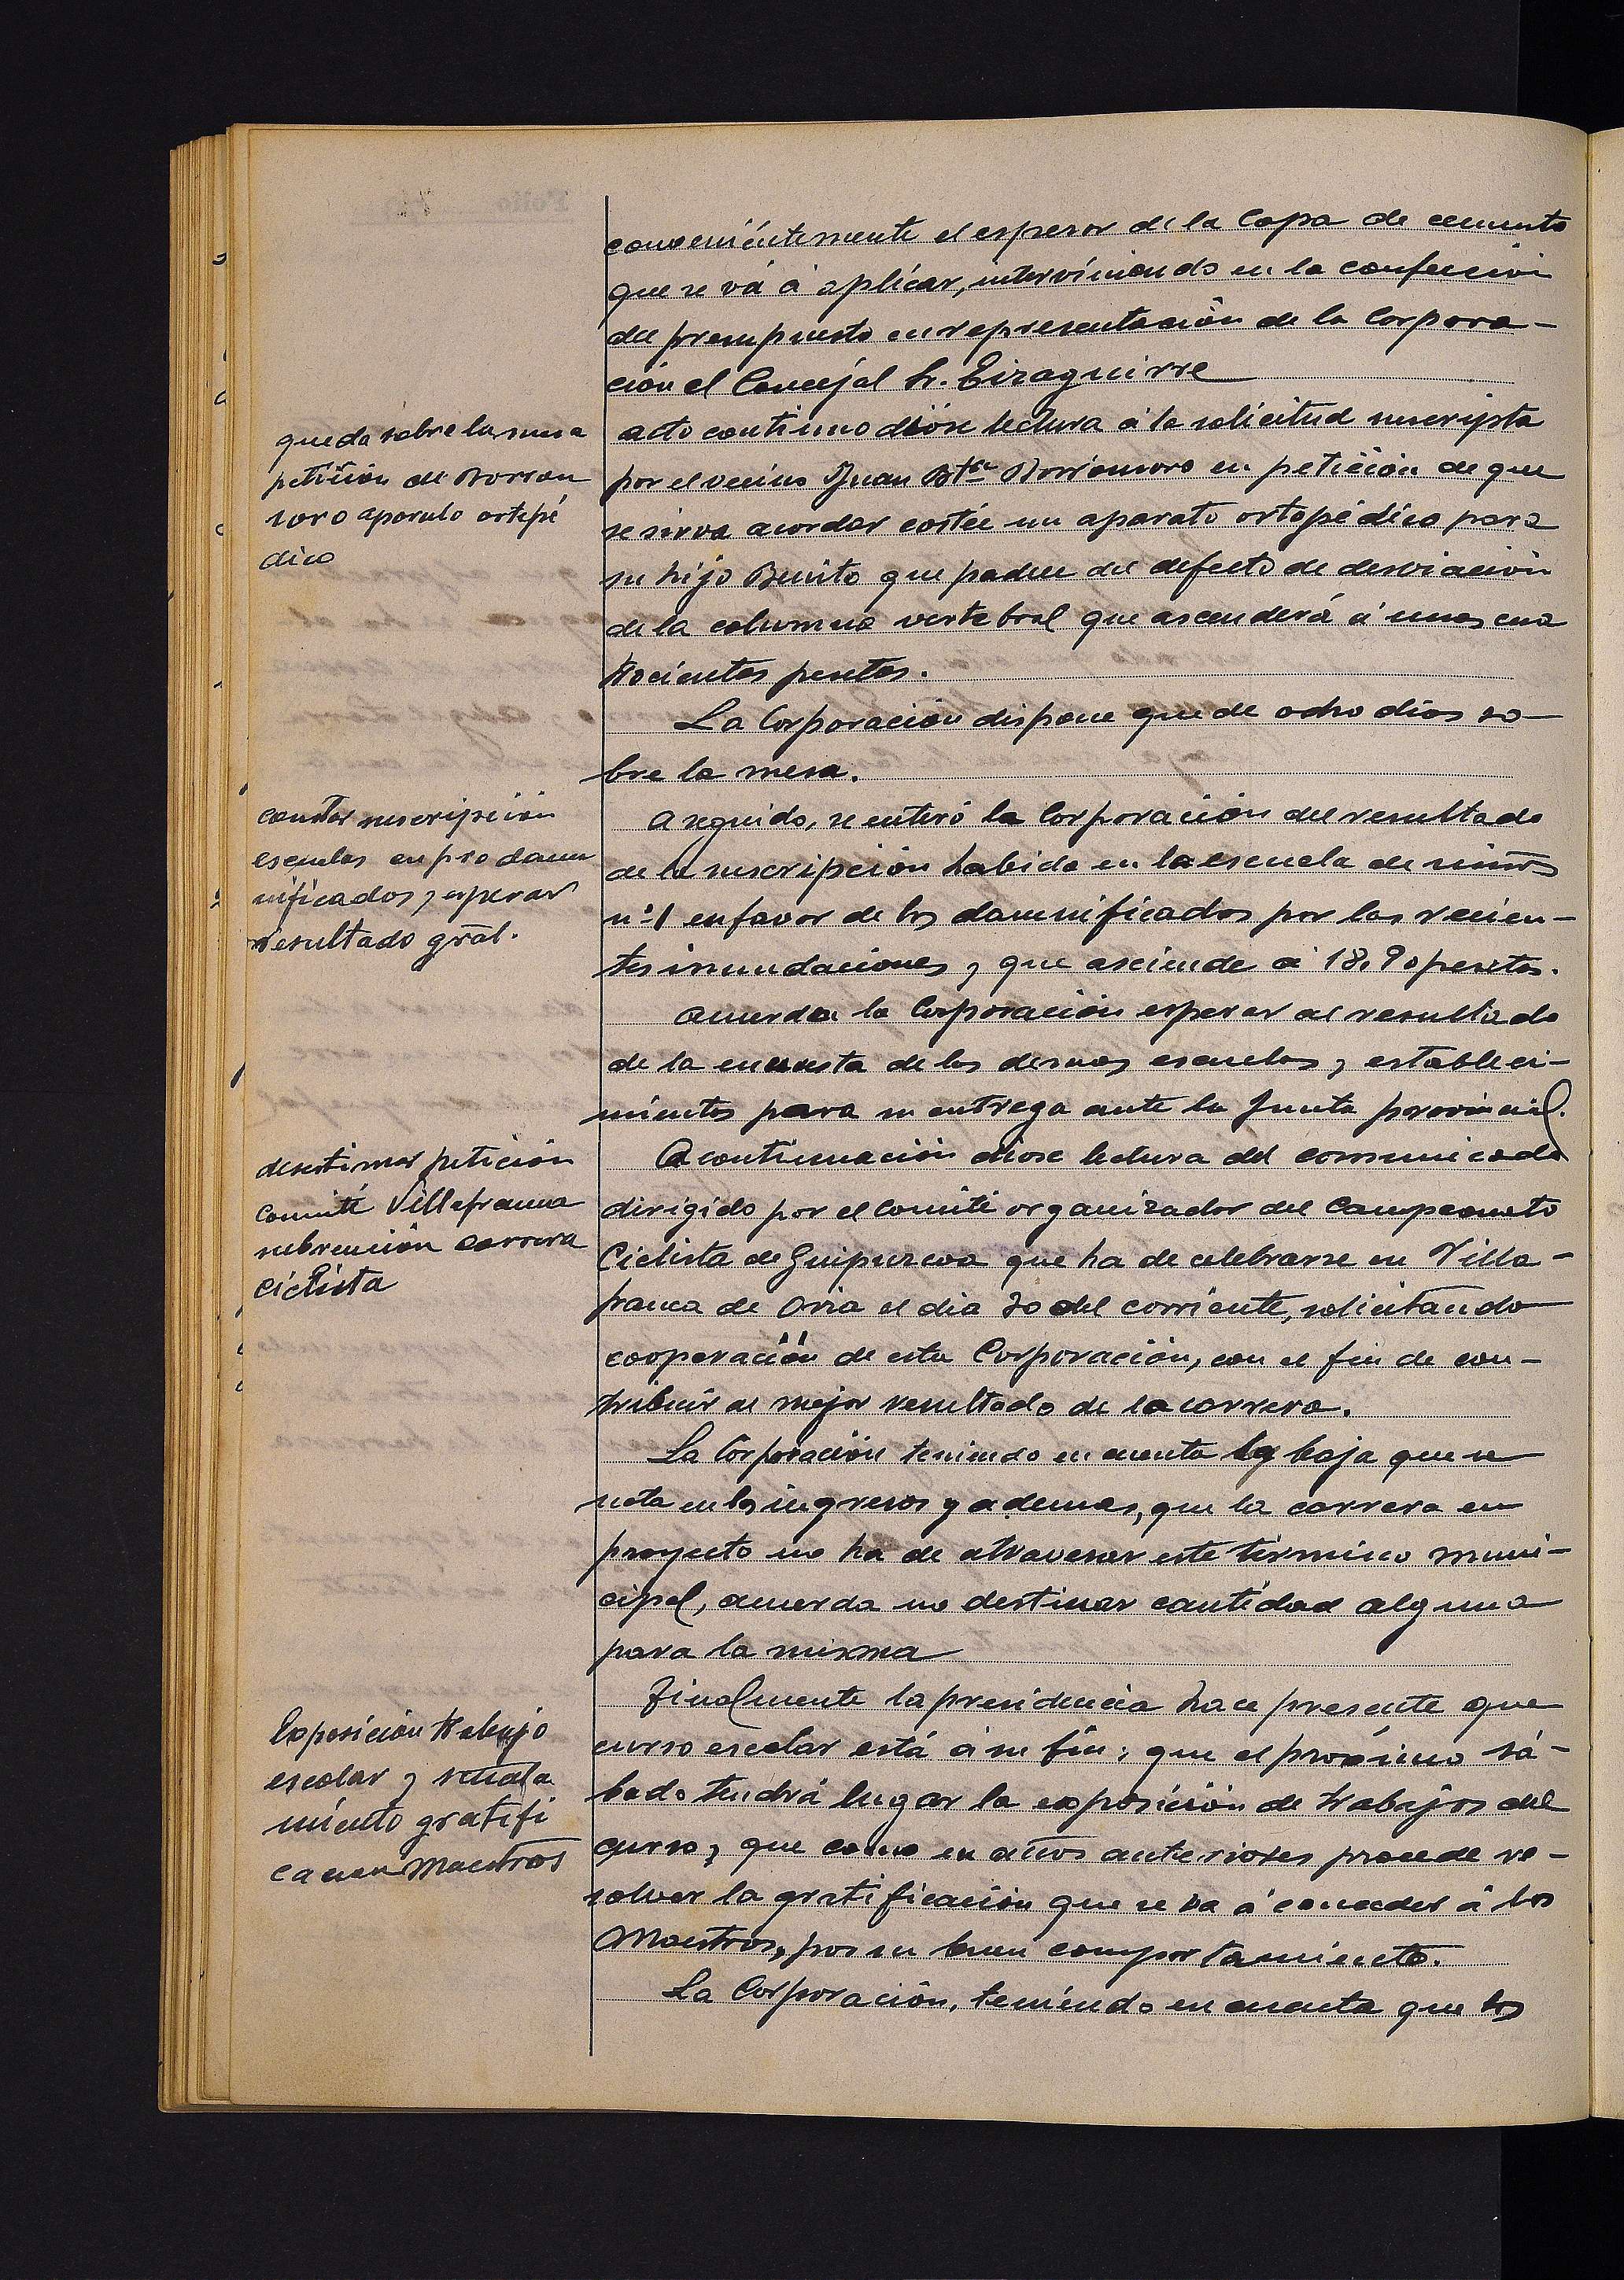 convenientemente el espesor de la Capa de cemento
que se vá á aplicar, interviniendo en la confección
del presupuesto en representación de la Corpora-
ción el Concejal Sr. Eizaguirre
queda sobre la mesa
petición de Borron
soro aparato ortopé
dico
acto continuo dióse lectura á la solicitud suscripta
por el vecino Juan Btta Borronsoro en petición de que
se sirva acordar costée un aparato ortopédico para
su hijo Benito que padece del defecto de desviación
de la columna vertebral que ascenderá á unas cua
trocientas pesetas.
La Corporación dispone quede ocho dias so-
bre la mesa.
constar suscripción
escuelas en pro dam
nificados y esperar
resultado gral.
a seguido, se enteró la Corporación del resultado
de la suscripción habida en la escuela de niños
nº 1 en favor de los damnificados por las recien-
tes inundaciones y que asciende á 18,90 pesetas.
acuerda la Corporación esperar al resultado
de la encuesta de las demas escuelas y estableci-
mientos para su entrega ante la Junta provincial.
desestimar petición
comité Villafranca
subvención carrera
ciclista
A continuación diose lectura del comunicado
dirigido por el Comité organizador del Campeonato
Ciclista de Guipuzcoa que ha de celebrarse en Villa-
franca de Oria el dia 30 del corriente, solicitando
cooperación de esta Corporación, con el fin de con-
tribuir al mejor resultado de la carrera.
La Corporación teniendo en cuenta la baja que se
nota en los ingresos y ademas, que la carrera en
proyecto no ha de atravesar este término muni-
cipal, acuerda no destinar cantidad alguna
para la misma
Exposición trabajo
escolar y señala
miento gratifi
cacion Maestros
Finalmente la presidencia hace presente que
curso escolar está á su fin; que el proximo sá-
bado tendrá lugar la exposición de trabajos del
curso y que como en años anteriores procede re-
solver la gratificación que se va á conceder á los
Maestros, por su buen comportamiento.
La Corporación, teniendo en cuenta que los